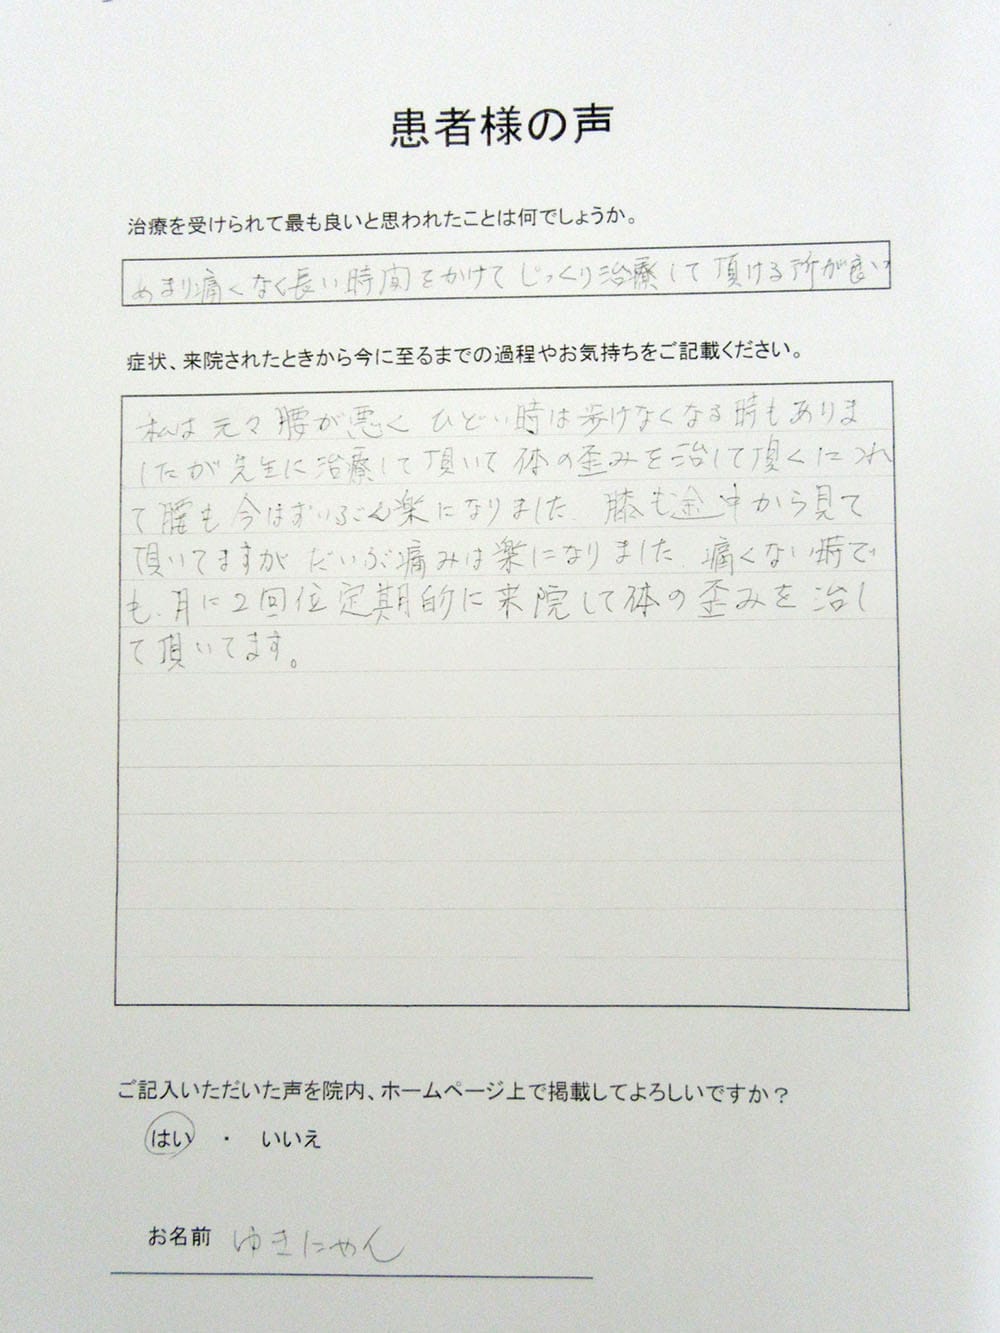 患者様の声
治療を受けられて最も良いと思われたことは何でしょうか。
あまり痛くなく長い時間をかけてじっくり治療して頂ける所が良い
症状、来院されたときから今に至るまでの過程やお気持ちをご記載ください。
私は元々腰が悪く ひどい時は歩けなくなる時もありま
したが先生に治療して頂いて体の歪みを治して頂くにつれ
て腰も今はずいぶん楽になりました。膝も途中から見て
頂いてますが だいぶ痛みは楽になりました。痛くない時で
も、月に2回位定期的に来院して体の歪みを治し
て頂いてます。
ご記入いただいた声を院内、ホームページ上で掲載してよろしいですか？
はい ・ いいえ
お名前 ゆきにゃん